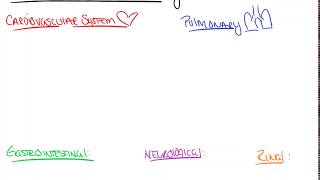 CARDIOVASCULAR SYSTEM
PULMONARY
GASTROINTESTINAL:
NEUROLOGICAL:
RENAL: